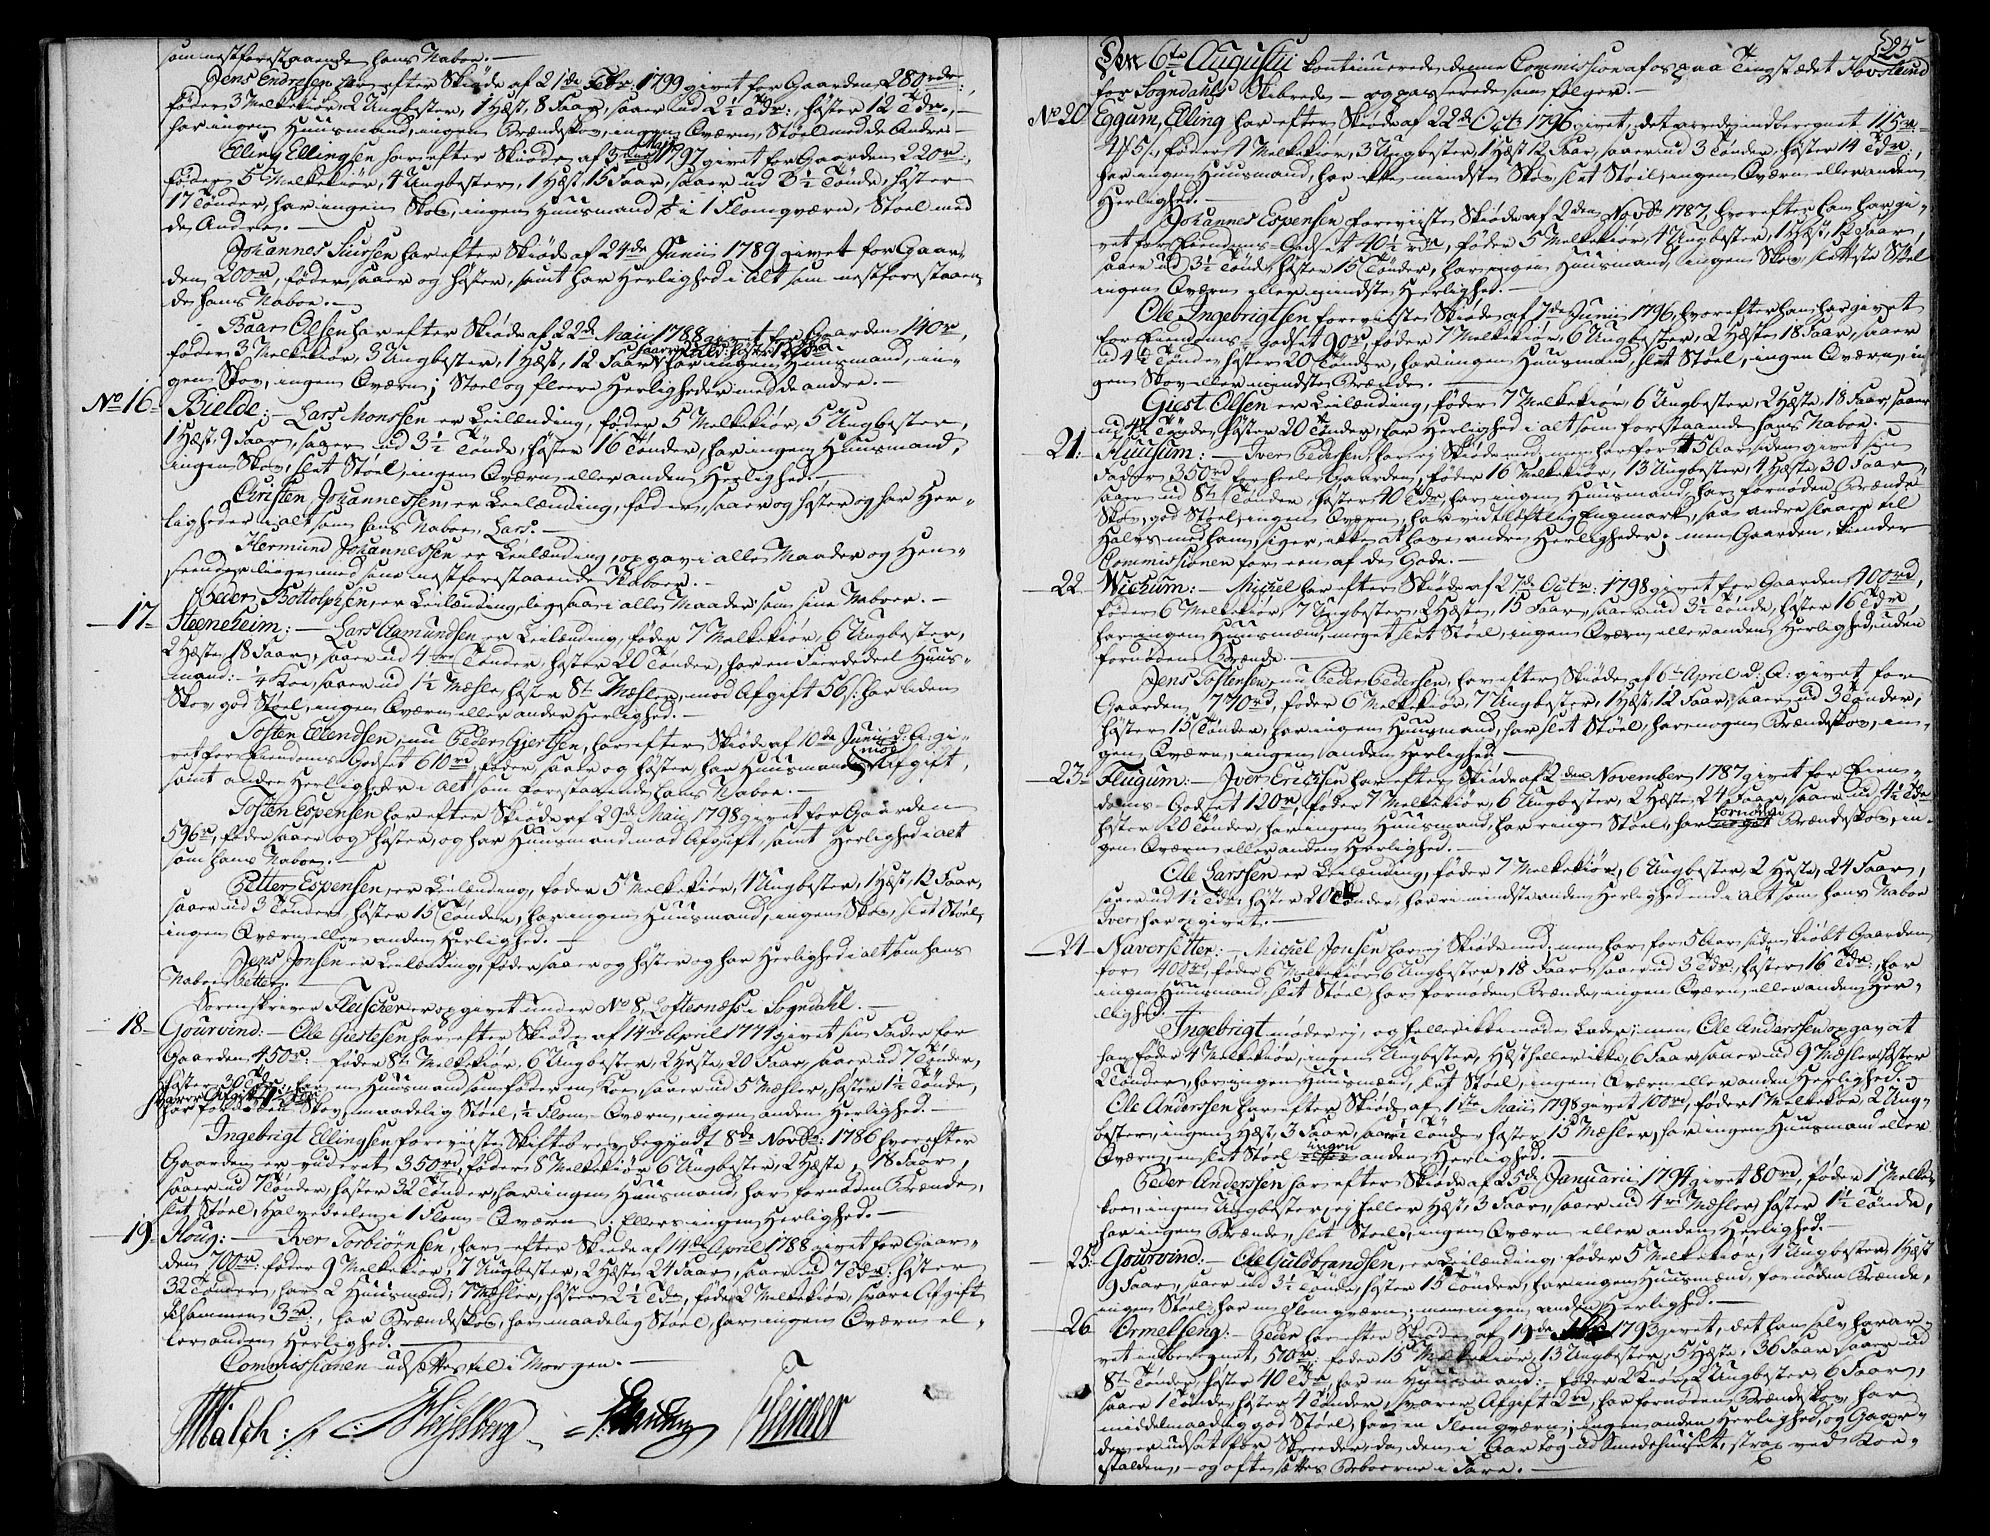 som næstforestaaende hans Naboe. —
Jens Endresen har efter Skiøde af 21de Febr: 1799 givet for Gaarden 280rdr:,
føder 3 Melkekiør, 2 Ungbester, 1 Hæst, 8 Faar, saaer ud 2½ Tdr:, høster 12 Tdr., —
har ingen Huusmand, ingen Brændeskov, ingen Qværn, Støel med de Andre —
Elling Ellingsen har efter Skiøde af 3die Maii 1797 givet for Gaarden 220r:,
føder 5 Melkekiør, 4 Ungbester, 1 Hæst, 15 Faar, saaer ud 3½ Tønde, høster
17 Tønder, har ingen Skov, ingen Huusmand, ½ i 1 Flomqværn, Støel med
de Andre. —
Johannes Siursen har efter Skiøde af 24de Junii 1789 givet for Gaar-
den 200r, føder, saaer og høster, samt har Herlighed i Alt som næstforestaaen
de hans Naboe. —
Baar Olsen har efter Skiøde af 22de Maii 1788 givet for Gaarden 140r,
føder 3 Melkekiør, 3 Ungbester, 1 Hæst, 12 Faar, har ingen Huusmand, in-
gen Skov, ingen Qværn; Støel og fleere Herligheder med de andre. —
No 16. Bielde: — Lars Monssen er Leilænding, føder 5 Melkekiør, 5 Ungbester,
1 Hæst, 9 Faar, saaer ud 3½ Tønde, høster 16 Tønder, har ingen Huusmand,
ingen Skov, slet Støel, ingen Qværn eller anden Herlighed. —
Christen Johannessen er Leilænding, føder, saaer og høster og har Her-
ligheder i alt som hans Naboe Lars. —
Hermund Johannessen er Leilænding, opgav i alle Maader og Hen-
seender liige med sine næstforestaaende Naboer. —
Peder Bottolphsen er Leilænding, ligesaa i alle Maader som sine Naboer. —
17. Steeneheim: — Lars Aamundsen er Leilænding, føder 7 Melkekiør, 6 Ungbester,
2 Hæste, 18 Faar, saaer ud 4re Tønder, høster 20 Tønder, har en Fierdedeel Huus-
mand: — ¼ Koe, saaer ud 1½ Mæsle, høster 8t Mæsler, mod Afgift 56s: har liden
Skov, god Støel, ingen Qværn eller anden Herlighed. —
Tosten Ellendsen, nu Peder Giertsen, har efter Skiøde af 10de Junii d: A: gi-
vet for Eiendoms Godset 610rd, føder, saaer og høster, har Huusmand mod Afgift,
samt anden Herligheder i Alt som forestaaende hans Naboe. —
Tosten Espensen har efter Skiøde af 29de Maii 1798 givet for Gaarden
596r, føder, saaer og høster, og har Huusmand mod Afgift, samt Herlighed i alt
som hans Naboe. —
Petter Espensen er Leilænding, føder 5 Melkekiør, 4 Ungbester, 1 Hæst, 12 Faar,
saaer ud 3 Tønder, høster 15 Tønder, har ingen Huusmand, ingen Skov, slet Støel,
ingen Qværn eller anden Herlighed. —
Jens Jonsen er Leilænding, føder, saaer og høster og har Herlighed i alt som hans
Naboe Petter. —
Sorenskriver Fleischer er opgivet under No 8, Loftesnæs i Sogndahl. —
18. Gourvind: — Ole Giestesen har efter Skiøde af 14de April 1774 givet sin Fader for
Gaarden 450r: — føder 8te Melkekiør, 6 Ungbester, 2 Hæste, 20 Faar, saaer ud 7 Tønder,
høster 30 Tdr:, har en Huusmand som føder en Koe, saaer ud 5 Mæsler, høster 1½ Tønde,
har fornøden Skov, maadelig Støel, ½ Flom-Qværn, ingen anden Herlighed. —
Ingebrigt Ellingsen foreviiste Skiftebrev begyndt 8de Novbr: 1786 hvorefter
Gaarden er vuderet 350rd, føder 8 Melkekiør, 6 Ungbester, 2 Hæste, 18 Faar,
saaer ud 7 Tønder, høster 32 Tønder, har ingen Huusmand, har fornøden Brænde,
slet Støel, Halvedeelen i 1 Flom-Qværn; Ellers ingen Herlighed. —
19. Houg: — Iver Torbiørnsen, har efter Skiøde af 14de April 1788 givet for Gaar-
den 700r: føder 9 Melkekiør, 7 Ungbester, 2 Hæste, 24 Faar, saaer ud 7 Tdr: høster
32 Tønder, har 2 Huusmænd; 7 Mæsler, høster 2½ Tdr, føder 2 Melkekiør, svare Afgift
tilsammen 3rd:, har Brændeskov, har maadelig Støel, har ingen Qværn el-
ler anden Herlighed. —
Commissionen udsættes til i Morgen. —
Den 6te Augustii kontinuerede denne Commission af os paa Tingstædet Hovslund
for Sogndahls Skibrede — og passerede som følger. —
No 20. Eggum, Elling har efter Skiøde af 22de Octr 1796 givet, det aarede indberegnet 115rd =
føder 4 Melkekiør, 3 Ungbester, 1 Hæst, 12 Faar, saaer ud 3 Tønder, høster 14 Tdr:,
har ingen Huusmand, har ikke mindste Skov, slet Støel, ingen Qværn eller anden
Herlighed. —
Johannes Espensen foreviiste Skiøde af 2den Novbr 1787, hvorefter han har gi-
vet for Eiendoms-Godset 40½rdr, føder 5 Melkekiør, 4 Ungbester, 1 Hæst, 12 Faar,
saaer ud 3½ Tønde, høster 15 Tønder, har ingen Huusmand, ingen Skov, slætteste Støel
ingen Qværn eller mindste Herlighed. —
Ole Ingebrigtsen foreviiste Skiøde af 7de Junii 1796, hvorefter han har givet
for Eiendoms-Godset 90r:, føder 7 Melkekiør, 6 Ungbester, 2 Hæste, 18 Faar, saaer
ud 4½ Tønde, høster 20 Tønder, har ingen Huusmand, slet Støel, ingen Qværn, in
gen Skov eller mindste Brænde. —
Giest Olsen er Leilænding, føder 7 Melkekiør, 6 Ungbester, 2 Hæste, 18 Faar, saaer
ud 4½ Tønde, høster 20 Tønder, har Herlighed i alt som forestaaende hans Naboe. —
21. Huusum: — Iver Pedersen har ej Skiøde med, men har for 15 Aar siden givet sin
Fader 350rd for heele Gaarden, føder 16 Melkekiør, 13 Ungbester, 4 Hæste, 30 Faar,
saaer ud 8te Tønder, høster 40 Tdr, har ingen Huusmand, har fornøden Brænde
Skov, god Støel, ingen Qværn, har vidtløftlig Engmark, som andre slaaer til
Halvs med ham, siger, ikke at have andre Herligheder; men Gaarden kiender
Commissionen for een af de Gode. —
22. Wichum: — Michel har efter Skiøde af 27de Octr: 1798 givet for Gaarden 400rd,
føder 6 Melkekiør, 7 Ungbester, 2 Hæste, 15 Faar, saaer ud 3½ Tønde, høster 16 Tdr,
har ingen Huusmænd, meget slet Støel, ingen Qværn eller anden Herlighed, uden
fornødene Brænde. —
Jens Tostensen, nu Peder Pedersen, har efter Skiøde af 6te April d: A: givet for
Gaarden 770rd, føder 6 Melkekiør, 7 Ungbester, 1 Hæst, 12 Faar, saaer ud 3 Tønder,
høster 15 Tønder, har ingen Huusmand, har slet Støel, har nogen Brændeskov, in-
gen Qværn, ingen anden Herlighed. —
23. Flugum: — Iver Erichsen har efter Skiøde af 2den November 1787 givet for Eien-
doms-Godset 120r, føder 7 Melkekiør, 6 Ungbester, 2 Hæste, 24 Faar, saaer ud 4½ Tdr
høster 20 Tønder, har ingen Huusmand, har ringe Støel, har fornøden Brændeskov, in-
gen Qværn eller anden Herlighed. —
Ole Larssen er Leilænding, føder 7 Melkekiør, 6 Ungbester, 2 Heste, 24 Faar,
saaer ud 4½ Tdr, høster 20 Tønder, har i mindste anden Herlighed end i alt som hans Naboe
Iver har opgivet. —
24. Naversetter: — Michel Jonsen har ej Skiøde med; men har for 5 Aar siden kiøbt Gaarden
for 400r:, føder 6 Melkekiør, 6 Ungbester, 18 Faar, saaer ud 3 Tdr:, høster 16 Tdr:, har
ingen Huusmand, slet Støel, har fornøden Brænde, ingen Qværn, eller anden Her-
lighed. —
Ingebrigt møder ej, og heller ikke møde lader; men Ole Anderssen opgav at
han føder 4 Melkekiør, ingen Ungbester, Hæst heller ikke, 6 Faar, saaer ud 9 Mæsler, høster
2 Tønder, har ingen Huusmænd, slet Støel, ingen Qværn eller anden Herlighed. —
Ole Anderssen har efter Skiøde af 1ste Maii 1798 givet 100rd, føder 1 Melkekoe, 2 Ung-
bester, ingen Hæst, 3 Faar, saaer ½ Tønde, høster 15 Mæsler, har ingen Huusmand eller
Qværn, en slet Støel ingen anden Herlighed. —
Peder Anderssen har efter Skiøde af 25de Januarii 1794 givet 80rd, føder 1 Melke-
koe, ingen Ungbester, ej heller Hæst, 3 Faar, saaer ud 4re Mæsler, høster 1½ Tønde,
har ingen Brænde, slet Støel, ingen Qværn eller anden Herlighed. —
25. Gourvind: — Ole Guldbrandsen, er Leilænding, føder 5 Melkekiør, 4 Ungbester, 1 Hæst
9 Faar, saaer ud 3½ Tønde, høster 15 Tønder, har ingen Huusmænd, fornøden Brænde,
ingen Støel, har en Flomqværn; men ingen anden Herlighed. —
26. Ormelseng: — Peder har efter Skiøde af 19de 1793 givet, det han selv har ar-
vet indberegnet, 500rd, føder 15 Melkekiør, 13 Ungbester, 5 Hæste, 36 Faar, saaer ud
8te Tønder, høster 40 Tdr, har en Huusmand: — føder 2 Kiør, 2 Ungbester, 6 Faar,
saaer 1 Tønde, høster 4 Tønder, svarer Afgift 2rd, har fornøden Brændeskov, har
middelmaadig god Støel, har en Flomqværn; ingen anden Herlighed, og Gaar-
den er udsat for Skreeder, da den i Aar tog ud Smedehuuset, strax ved Koe-
stalden, — og ofte sættes Beboerne i Fare. —